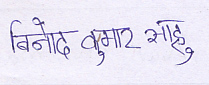 बिनोद कुमार साहु